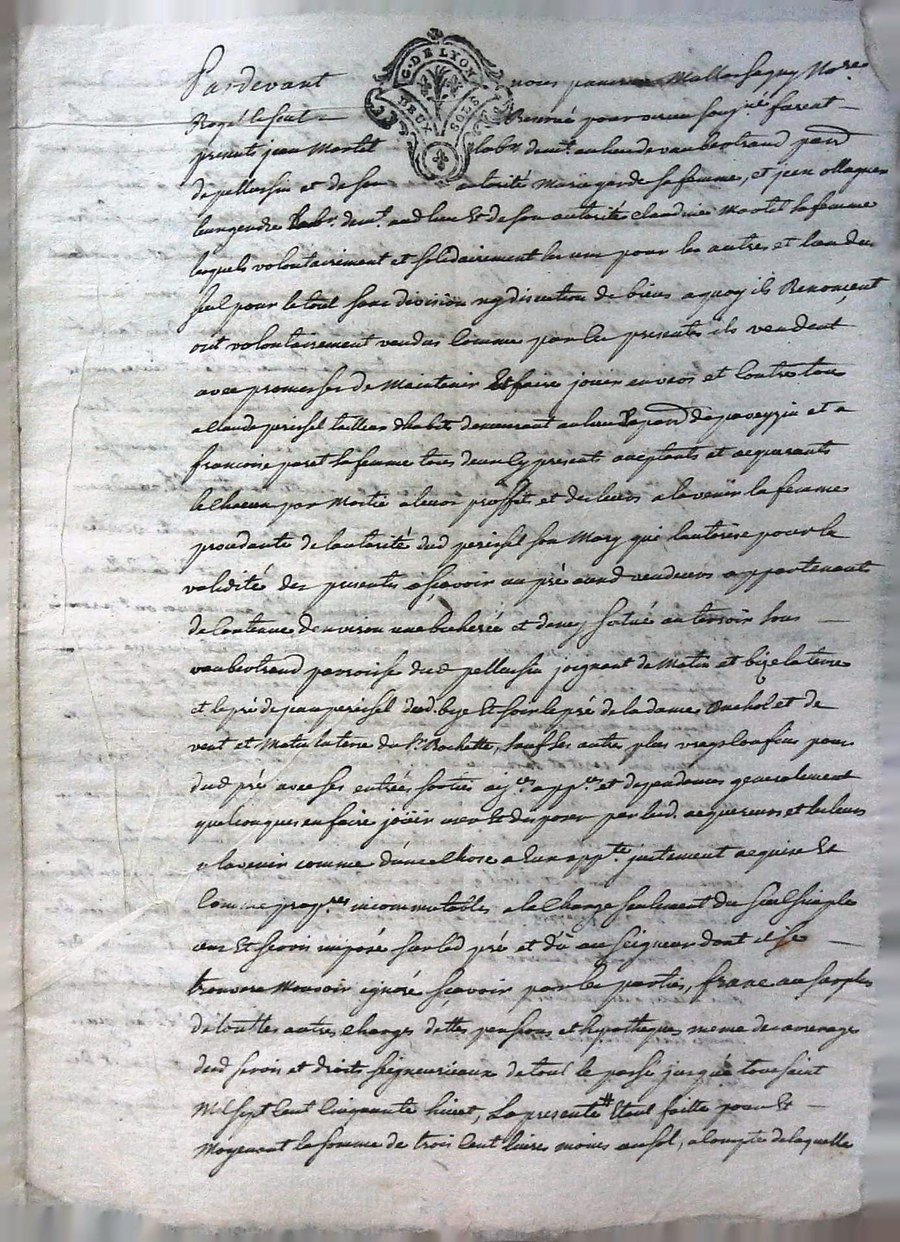 G. DE LYON
DEUX SOLS
Pardevant nous
Royal le seul reservé pour soussigné furent
presents jean Martel labr demt. au lieu de vaubertrand parr
de pellussin et de son autorité Marie sa femme, et jean ollagnier
leur gendre labr. demt. aud lieu Et de son autorité claudine Martel sa femme
lesquels volontairement et solidairement les uns pour les autres et l'un deux
seul pour le tout sans division ny discution de biens a quoy ils Renoncent
ont volontairement vendus Comme par les presentes ils vendent
avec promesses de Maintenir Et faire jouir envers et Contre tous
a Claude perichel tailleur d'habits demeurant au lieu & parr de paveyzin et a
francoise paret sa femme tous deux cy presents acceptants et acquerants
le chacun par Moitié a leur proffit et des leurs a lavenir la femme
procedante de lautorité dud perichel son Mary qui lautorise pour la
validité des presentes a scavoir un pré auxd vendeurs appartenant
de Contenue d'environ une bicherée et demy situé au terroir sous
vaubertrand parroisse dud pellussin joignant de Matin et bize la terre
et le pré de jean perichel dud. bize Et soir le pré de la dame et de
vent et Matin la terre du Sr. Rochette, sauf ses autres plus vrays Confins pour
dud pré avec ses entrées sorties aisces appces et dependances generalement
quelconques en faire jouir user Et disposer par lesd. acquereurs et les leurs
a lavenir comme d'une chose a Eux appte. justement acquise Et
Comme propres incommutables a la Charge seulement du seul simple
cens Et servis imposé sur led pré et dû au seigneur dont il se
trouvera Mouvoir ignoré scavoir par les parties, franc au surplus
de toutes autres charges dettes pensions et hypotheques meme des arrerages
dud servis et droits seigneuriaux de tout le passé jusqu'à toussaint
Mil sept Cent Cinquante huict, La presente Etant faitte pour Et
Moyenant la somme de trois Cent livres moins un sol, a Compte de laquelle